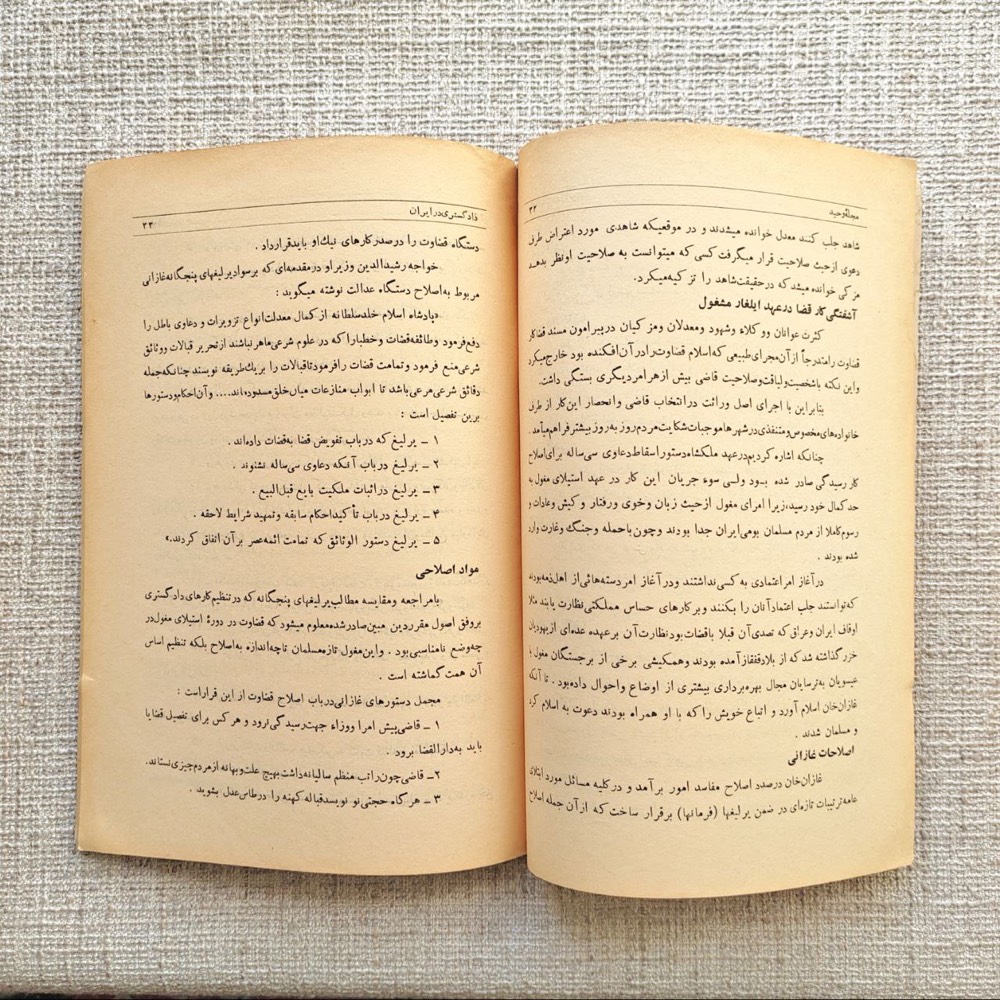 مجله وحید
۳۲
شاهد جلب کنند معدل خوانده میشدند و در موقعیکه شاهدی مورد اعتراض طرف
دعوی از حیث صلاحیت قرار میگرفت کسی که میتوانست به صلاحیت او نظر بدهد
مزکی خوانده میشد که در حقیقت شاهد را تزکیه میکرد.
آشفتگی کار قضا در عهد ایلغار مشغول
کثرت عوانان و وکلاء وشهود ومعدلان ومزکیان در پیرامون مسند قضا کار
قضاوت را مندرجاً از آن مجرای طبیعی که اسلام قضاوت را در آن افکنده بود خارج میکرد
و این نکته باشخصیت ولیاقت وصلاحیت قاضی بیش از هر امر دیگری بستگی داشت.
بنابراین با اجرای اصل وراثت در انتخاب قاضی وانحصار این کار از طرف
خانواده های مخصوص و متنفذی در شهرها موجبات شکایت مردم روز به روز بیشتر فراهم میآمد.
چنانکه اشاره کردیم در عهد ملکشاه دستور اسقاط دعاوی سی ساله برای اصلاح
کار رسیدگی صادر شده بود ولی سوء جریان این کار در عهد استیلای مغول به
حد کمال خود رسید، زیرا امرای مغول از حیث زبان وخوی ورفتار و کیش و عادات و
رسوم کاملا از مردم مسلمان بومی ایران جدا بودند وچون باحمله وجنگ وغارت وارد
شده بودند.
در آغاز امر اعتمادی به کسی نداشتند و در آغاز امر دسته هائی از اهل ذمه بودند
که توانستند جلب اعتماد آنان را بکنند و بر کارهای حساس مملکتی نظارت یابند مثلا
اوقاف ایران وعراق که تصدی آن قبلا باقضات بود نظارت آن برعهده عده ای از یهودیان
خزر گذاشته شد که از بلاد قفقاز آمده بودند وهمکیشی برخی از برجستگان مغول با
عیسویان به ترسایان مجال بهره برداری بیشتری از اوضاع واحوال داده بود. تا آنکه
غازان خان اسلام آورد و اتباع خویش را که با او همراه بودند دعوت به اسلام کرد
و مسلمان شدند.
اصلاحات غازانی
غازان خان در صدد اصلاح مفاسد امور برآمد و در کلیه مسائل مورد ابتلای
عامه ترتیبات تازه ای در ضمن یرلیغها (فرمانها) برقرار ساخت که از آن جمله اصلاح
دادگستری در ایران
۳۳
دستگاه قضاوت را در صدر کارهای نیك او باید قرار داد.
خواجه رشیدالدین وزیر او در مقدمه ای که بر سواد یرلیغهای پنجگانه غازانی
مربوط به اصلاح دستگاه عدالت نوشته میگوید:
«پادشاه اسلام خلد سلطانه از کمال معدلت انواع تزویرات و دعاوی باطل را
دفع فرمود وطائفه قضات وخطبا را که در علوم شرعی ماهر نباشند از تحریر قبالات ووثائق
شرعی منع فرمود و تمامت قضات را فرمود تا قبالات را بریك طریقه نویسند چنانکه جمله
دقائق شرعی مرعی باشد تا ابواب منازعات میان خلق مسدود ماند.... و آن احکام ودستورها
برین تفصیل است:
۱ ـ یرلیغ که در باب تفویض قضا به قضات داده اند.
۲ ـ یرلیغ در باب آنکه دعاوی سی ساله نشنوند.
۳ ـ یرلیغ در اثبات ملکیت بایع قبل البیع.
۴ ـ یرلیغ در باب تأکید احکام سابقه و تمهید شرایط لاحقه.
۵ ـ یرلیغ دستور الوثائق که تمامت ائمه عصر برآن اتفاق کردند.»
مواد اصلاحی
بامراجعه ومقایسه مطالب یرلیغهای پنجگانه که در تنظیم کارهای دادگستری
بر وفق اصول مقرر دین مبین صادر شده معلوم میشود که قضاوت در دورۀ استیلای مغول در
چه وضع نامناسبی بود. واین مغول تازه مسلمان تاچه اندازه به اصلاح بلکه تنظیم اساس
آن همت گماشته است.
مجمل دستورهای غازانی در باب اصلاح قضاوت از این قرار است:
۱ ـ قاضی پیش امرا ووزراء جهت رسیدگی نرود و هرکس برای تفصیل قضایا
باید به دارالقضا برود.
۲ـ قاضی چون راتب منظم سالیانه داشت بهیچ علت و بهانه از مردم چیزی نستاند.
۳ ـ هر گاه حجتی نو نویسد قباله کهنه را در طاس عدل بشوید.